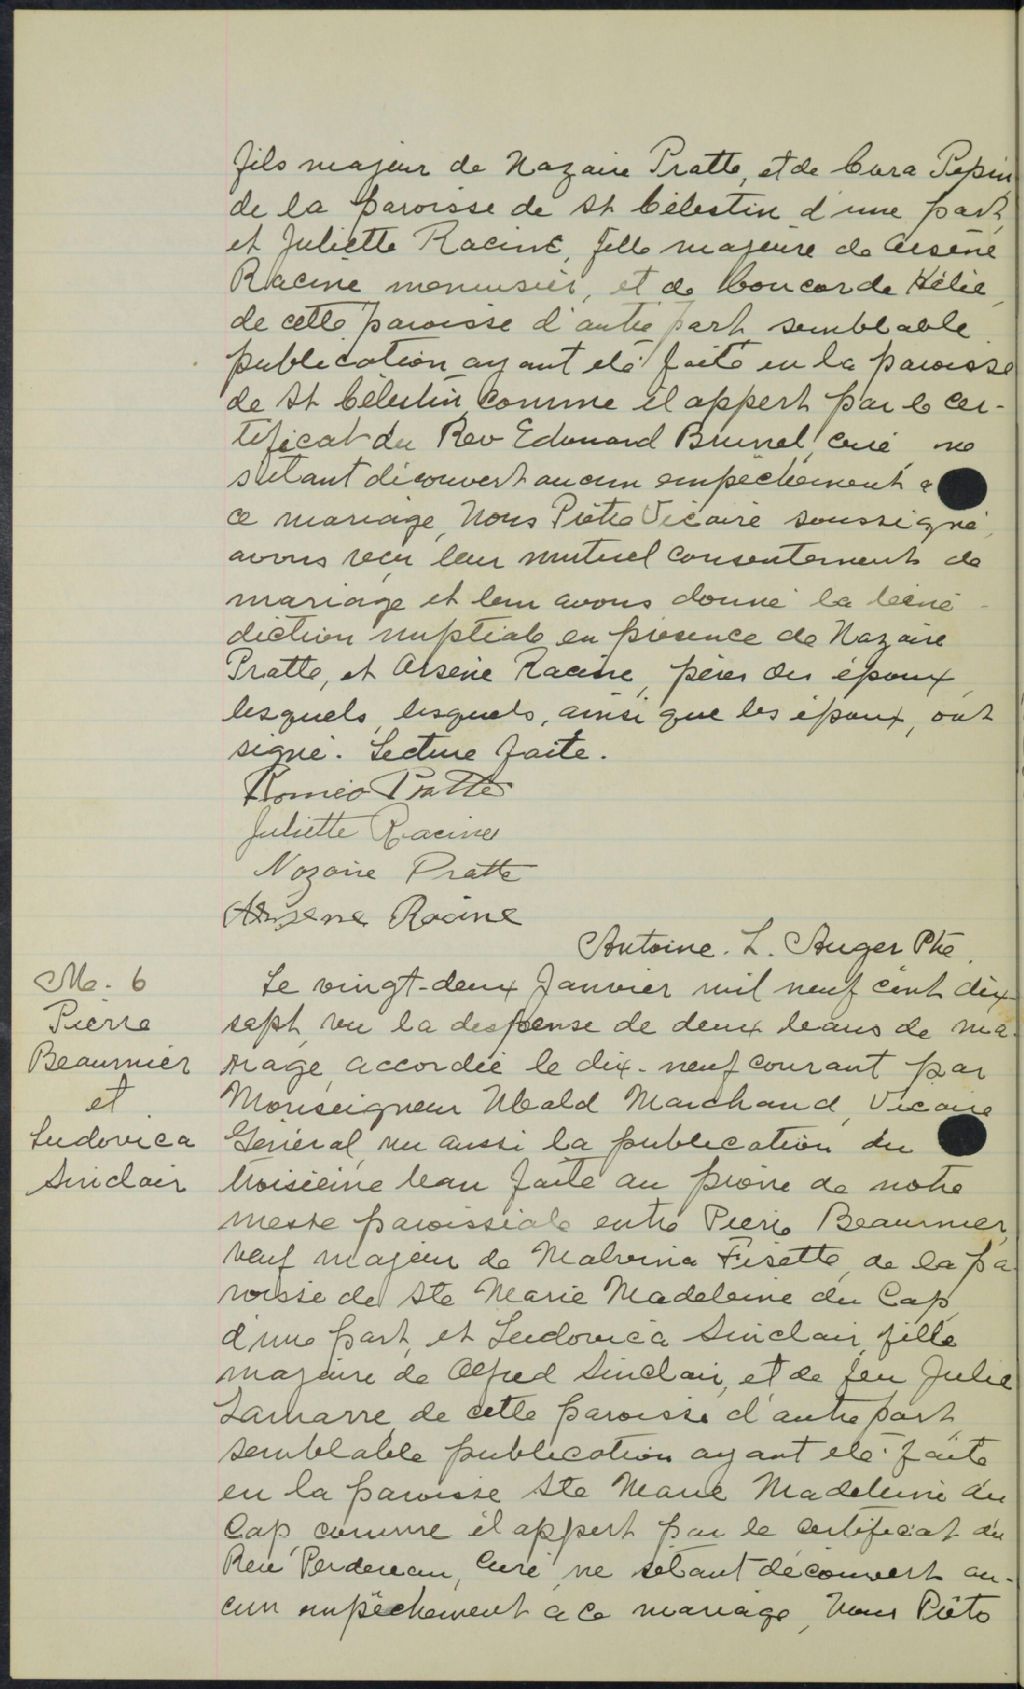 fils majeur de Nazaire Pratte, et de Cora Pepin,
de la paroisse de St Célestin d'une part,
et Juliette Racine, fille majeure de Arsène
Racine menuisier, et de Concorde Hélie,
de cette paroisse d'autre part, semblable
publication ayant été faite en la paroisse
de St Célestin, comme il appert par le cer-
tificat du Rev Edouard Brunel, curé, ne
s'étant découvert aucun empêchement à
ce mariage, Nous Prêtre Vicaire soussigné,
avons reçu leur mutuel consentement de
mariage et leur avons donné la béné-
diction nuptiale en présence de Nazaire
Pratte, et Arsène Racine, pères des époux,
lesquels, lesquels, ainsi que les époux, ont
signé. Lecture faite.
Roméo Pratte
Juliette Racine
Nazaire Pratte
Arsene Racine
Antoine. L. Auger Ptre.
M. 6
Pierre
Beaumier
et
Ludovica
Sinclair
Le vingt-deux Janvier mil neuf cent dix-
sept, vu la dispense de deux bans de ma-
riage, accordée le dix-neuf courant par
Monseigneur Ubald Marchand, Vicaire
Général, vu aussi la publication du
troisième ban faite au prône de notre
messe paroissiale entre Pierre Beaumier,
veuf majeur de Malvina Fisette, de la pa-
roisse de Ste Marie Madeleine du Cap,
d'une part, et Ludovica Sinclair, fille
majeure de Alfred Sinclair, et de feu Julie
Lamarre, de cette paroisse d'autre part,
semblable publication ayant été faite
en la paroisse Ste Marie Madeleine du
Cap, comme il appert par le certificat du
Rev Perdereau, Curé, ne s'étant découvert au-
cun empêchement à ce mariage, Nous Prêtre